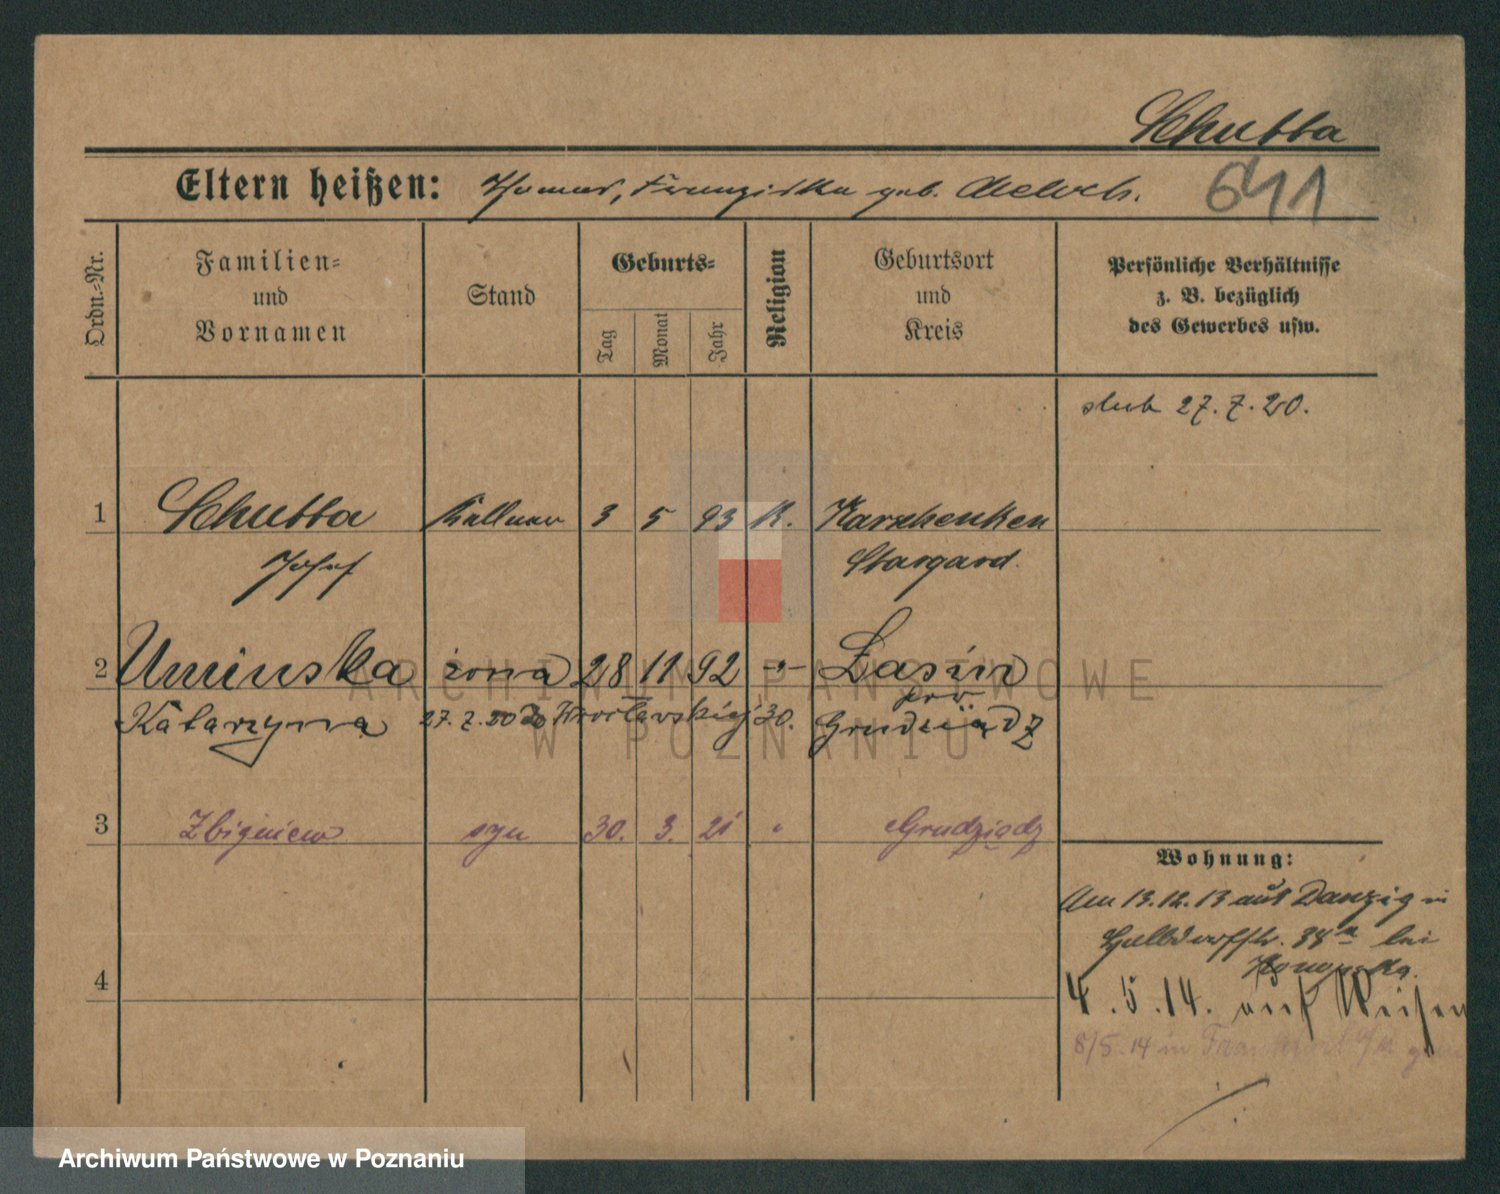 Schubba
Eltern heißen: Thomas, Franziska geb. Meloch.
641
Ordn.-Nr.
Familien-
und
Vornamen
Stand
Geburts-
Tag
Monat
Jahr
Religion
Geburtsort
und
Kreis
Persönliche Verhältnisse
z. B. bezüglich
des Gewerbes usw.
ślub 27.7.20.
1 Schubba Kellner 3 5 93 K. Karschenken
Josef Stargard.
2 Umińska żona 28 11 92 -"- Łasin
pow
Katarzyna 27.7.20 30. Grudziądz
3 Zbigniew syn 30. 3. 21 " Grudziądz
Wohnung:
Am 13.12.13 aus Danzig in
38a bei
4
4.5.14. auf Reisen
8/5.14 in Frankfurt a/M
ARCHIWUM PAŃSTWOWE
W POZNANIU
Archiwum Państwowe w Poznaniu